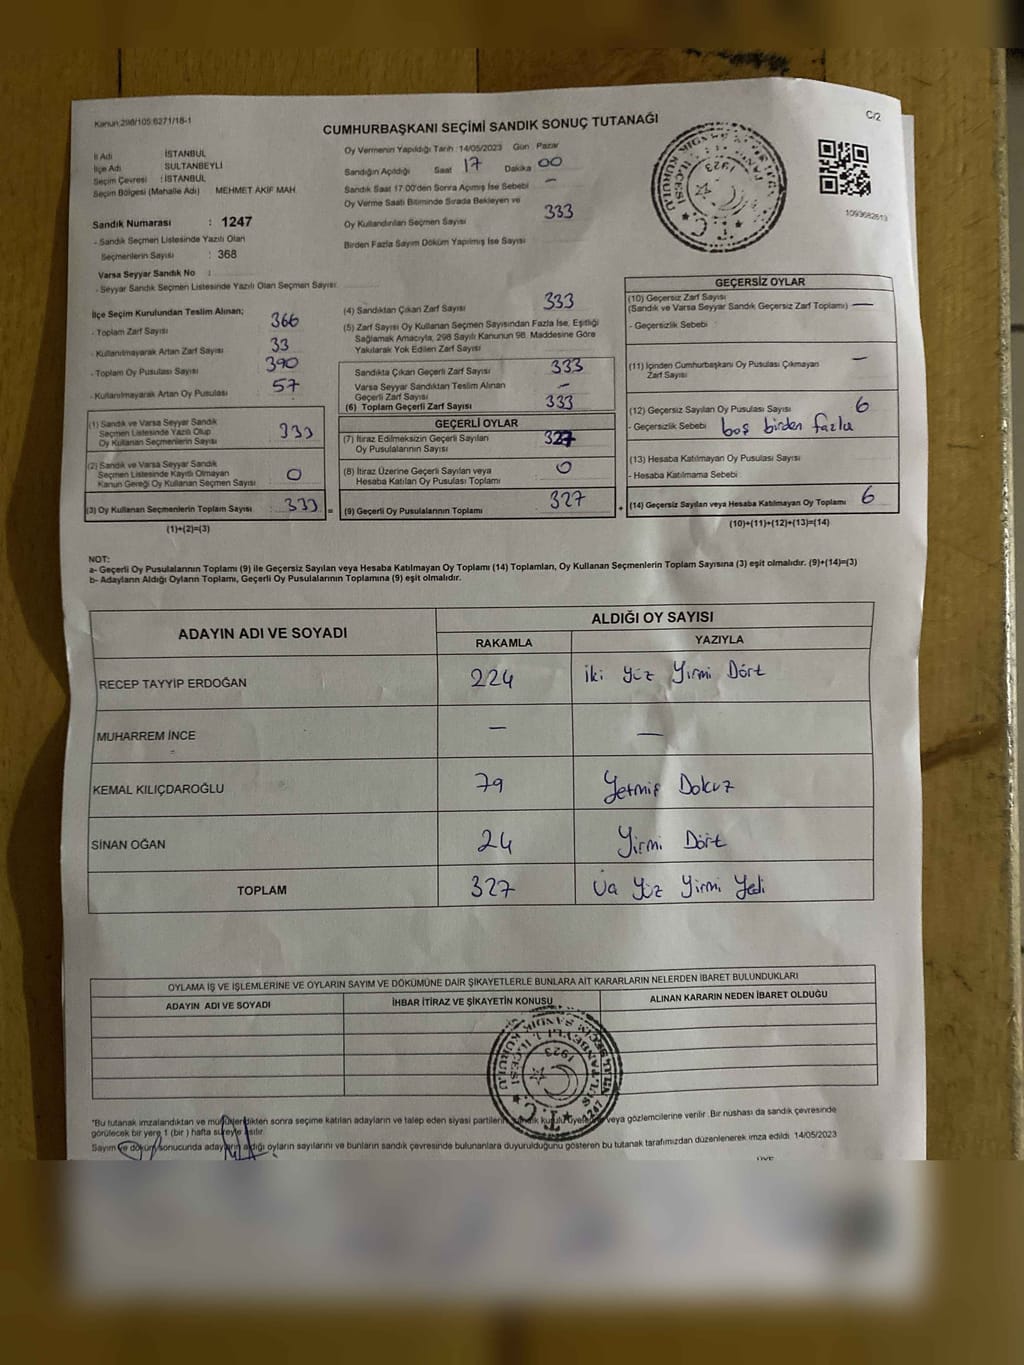 Kanun:298/105:6271/18-1
C/2
CUMHURBAŞKANI SEÇİMİ SANDIK SONUÇ TUTANAĞI
İl Adı : İSTANBUL
İlçe Adı : SULTANBEYLİ
Seçim Çevresi : İSTANBUL
Seçim Bölgesi (Mahalle Adı) MEHMET AKİF MAH.
Sandık Numarası : 1247
- Sandık Seçmen Listesinde Yazılı Olan
Seçmenlerin Sayısı : 368
Varsa Seyyar Sandık No :
- Seyyar Sandık Seçmen Listesinde Yazılı Olan Seçmen Sayısı:
Oy Vermenin Yapıldığı Tarih : 14/05/2023 Gün : Pazar
Sandığın Açıldığı Saat 17 Dakika 00
Sandık Saat 17.00'den Sonra Açımış İse Sebebi –
Oy Verme Saati Bitiminde Sırada Bekleyen ve
Oy Kullandırılan Seçmen Sayısı 333
Birden Fazla Sayım Döküm Yapılmış İse Sayısı
1093682613
İlçe Seçim Kurulundan Teslim Alınan;
- Toplam Zarf Sayısı 366
- Kullanılmayarak Artan Zarf Sayısı 33
- Toplam Oy Pusulası Sayısı 390
- Kullanılmayarak Artan Oy Pusulası 57
(1) Sandık ve Varsa Seyyar Sandık
Seçmen Listesinde Yazılı Olup
Oy Kullanan Seçmenlerin Sayısı 333
(2) Sandık ve Varsa Seyyar Sandık
Seçmen Listesinde Kayıtlı Olmayan
Kanun Gereği Oy Kullanan Seçmen Sayısı 0
(3) Oy Kullanan Seçmenlerin Toplam Sayısı 333 =
(1)+(2)=(3)
(4) Sandıktan Çıkan Zarf Sayısı 333
(5) Zarf Sayısı Oy Kullanan Seçmen Sayısından Fazla İse, Eşitliği
Sağlamak Amacıyla; 298 Sayılı Kanunun 98. Maddesine Göre
Yakılarak Yok Edilen Zarf Sayısı
Sandıkta Çıkan Geçerli Zarf Sayısı 333
Varsa Seyyar Sandıktan Teslim Alınan
Geçerli Zarf Sayısı –
(6) Toplam Geçerli Zarf Sayısı 333
GEÇERLİ OYLAR
(7) İtiraz Edilmeksizin Geçerli Sayılan
Oy Pusulalarının Sayısı 327
(8) İtiraz Üzerine Geçerli Sayılan veya
Hesaba Katılan Oy Pusulası Toplamı 0
(9) Geçerli Oy Pusulalarının Toplamı 327 +
GEÇERSİZ OYLAR
(10) Geçersiz Zarf Sayısı
(Sandık ve Varsa Seyyar Sandık Geçersiz Zarf Toplamı) —
- Geçersizlik Sebebi
(11) İçinden Cumhurbaşkanı Oy Pusulası Çıkmayan
Zarf Sayısı –
(12) Geçersiz Sayılan Oy Pusulası Sayısı 6
- Geçersizlik Sebebi boş birden fazla
(13) Hesaba Katılmayan Oy Pusulası Sayısı
- Hesaba Katılmama Sebebi
(14) Geçersiz Sayılan veya Hesaba Katılmayan Oy Toplamı 6
(10)+(11)+(12)+(13)=(14)
NOT:
a- Geçerli Oy Pusulalarının Toplamı (9) ile Geçersiz Sayılan veya Hesaba Katılmayan Oy Toplamı (14) Toplamları, Oy Kullanan Seçmenlerin Toplam Sayısına (3) eşit olmalıdır. (9)+(14)=(3)
b- Adayların Aldığı Oyların Toplamı, Geçerli Oy Pusulalarının Toplamına (9) eşit olmalıdır.
ADAYIN ADI VE SOYADI
ALDIĞI OY SAYISI
RAKAMLA YAZIYLA
RECEP TAYYİP ERDOĞAN 224 iki yüz Yirmi Dört
MUHARREM İNCE — —
KEMAL KILIÇDAROĞLU 79 Yetmiş Dokuz
SİNAN OĞAN 24 Yirmi Dört
TOPLAM 327 Üç Yüz Yirmi Yedi
OYLAMA İŞ VE İŞLEMLERİNE VE OYLARIN SAYIM VE DÖKÜMÜNE DAİR ŞİKAYETLERLE BUNLARA AİT KARARLARIN NELERDEN İBARET BULUNDUKLARI
ADAYIN ADI VE SOYADI İHBAR İTİRAZ VE ŞİKAYETİN KONUSU ALINAN KARARIN NEDEN İBARET OLDUĞU
T.C. SULTANBEYLİ 1. İLÇESİ 1247 SANDIK KURULU
1923
"Bu tutanak imzalandıktan ve mühürlendikten sonra seçime katılan adayların ve talep eden siyasi partilerin sandık kurulu üyelerine veya gözlemcilerine verilir. Bir nüshası da sandık çevresinde
görülecek bir yere 1 (bir) hafta süreyle asılır.
Sayım ve döküm sonucunda adayların aldığı oyların sayılarını ve bunların sandık çevresinde bulunanlara duyurulduğunu gösteren bu tutanak tarafımızdan düzenlenerek imza edildi. 14/05/2023
ÜYE